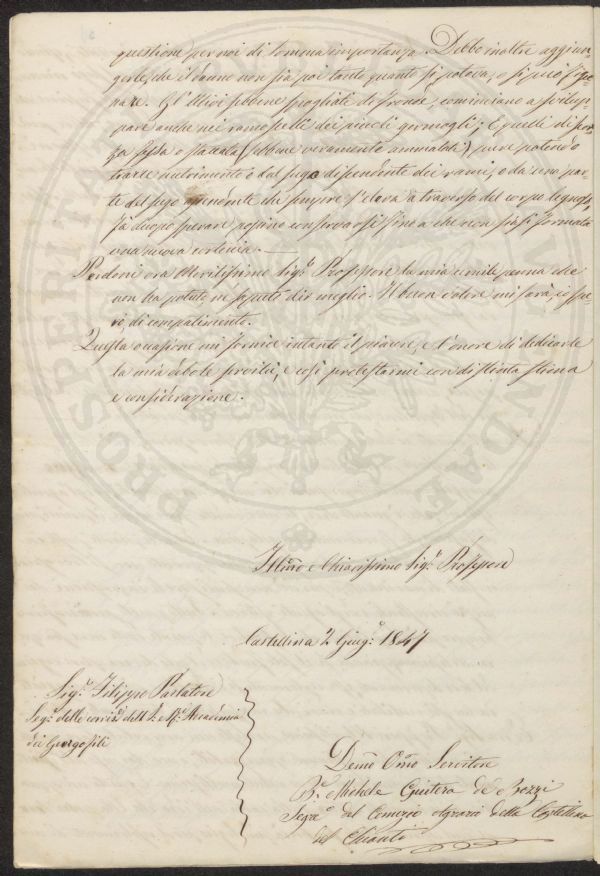 questione per noi di somma importanza. Debbo inoltre aggiun-
gerle, che il danno non sia poi tanto quanto si potova, o si può sppo-
nare. Gl'Ulivi sebbene spogliati di fronde, cominciano a svilup-
pare anche nei ramoscelli dei piccoli germogli; E quelli di
o staccata (sebbene veramente ammalati), pure potendo
trarre nutrimento o dal sugo dipendente dei rami, o da una par-
te del sugo ascendente che sempre s'eleva a traverso del corpo legnoso,
fa duopo sperare possino conservarsi sino a che non siasi formata
una nuova corteccia. —
Perdoni ora Meritissimo Sig.r Professore la mia umile penna che
non ha potuto nè saputo dir meglio. Il buon volere mi sarà, io spe-
ro, di compatimento.
Questa occasione mi fornisce intanto il piacere, e l'onore di dedicarle
la mia debole servitù, e così protestarmi con distinta stima
e considerazione.
Illmo e Chiarissimo Sig.r Professore
Castellina 2 Giug.o 1847
Sig.r Filippo Parlatore
Seg.o delle corrisp. dell'I. e R. Accademia
dei Georgofili
Devmo Obmo Servitore
Michele
Seg.o del Comizio Agrario della Castellina
del Chianti
PROSPERITATI